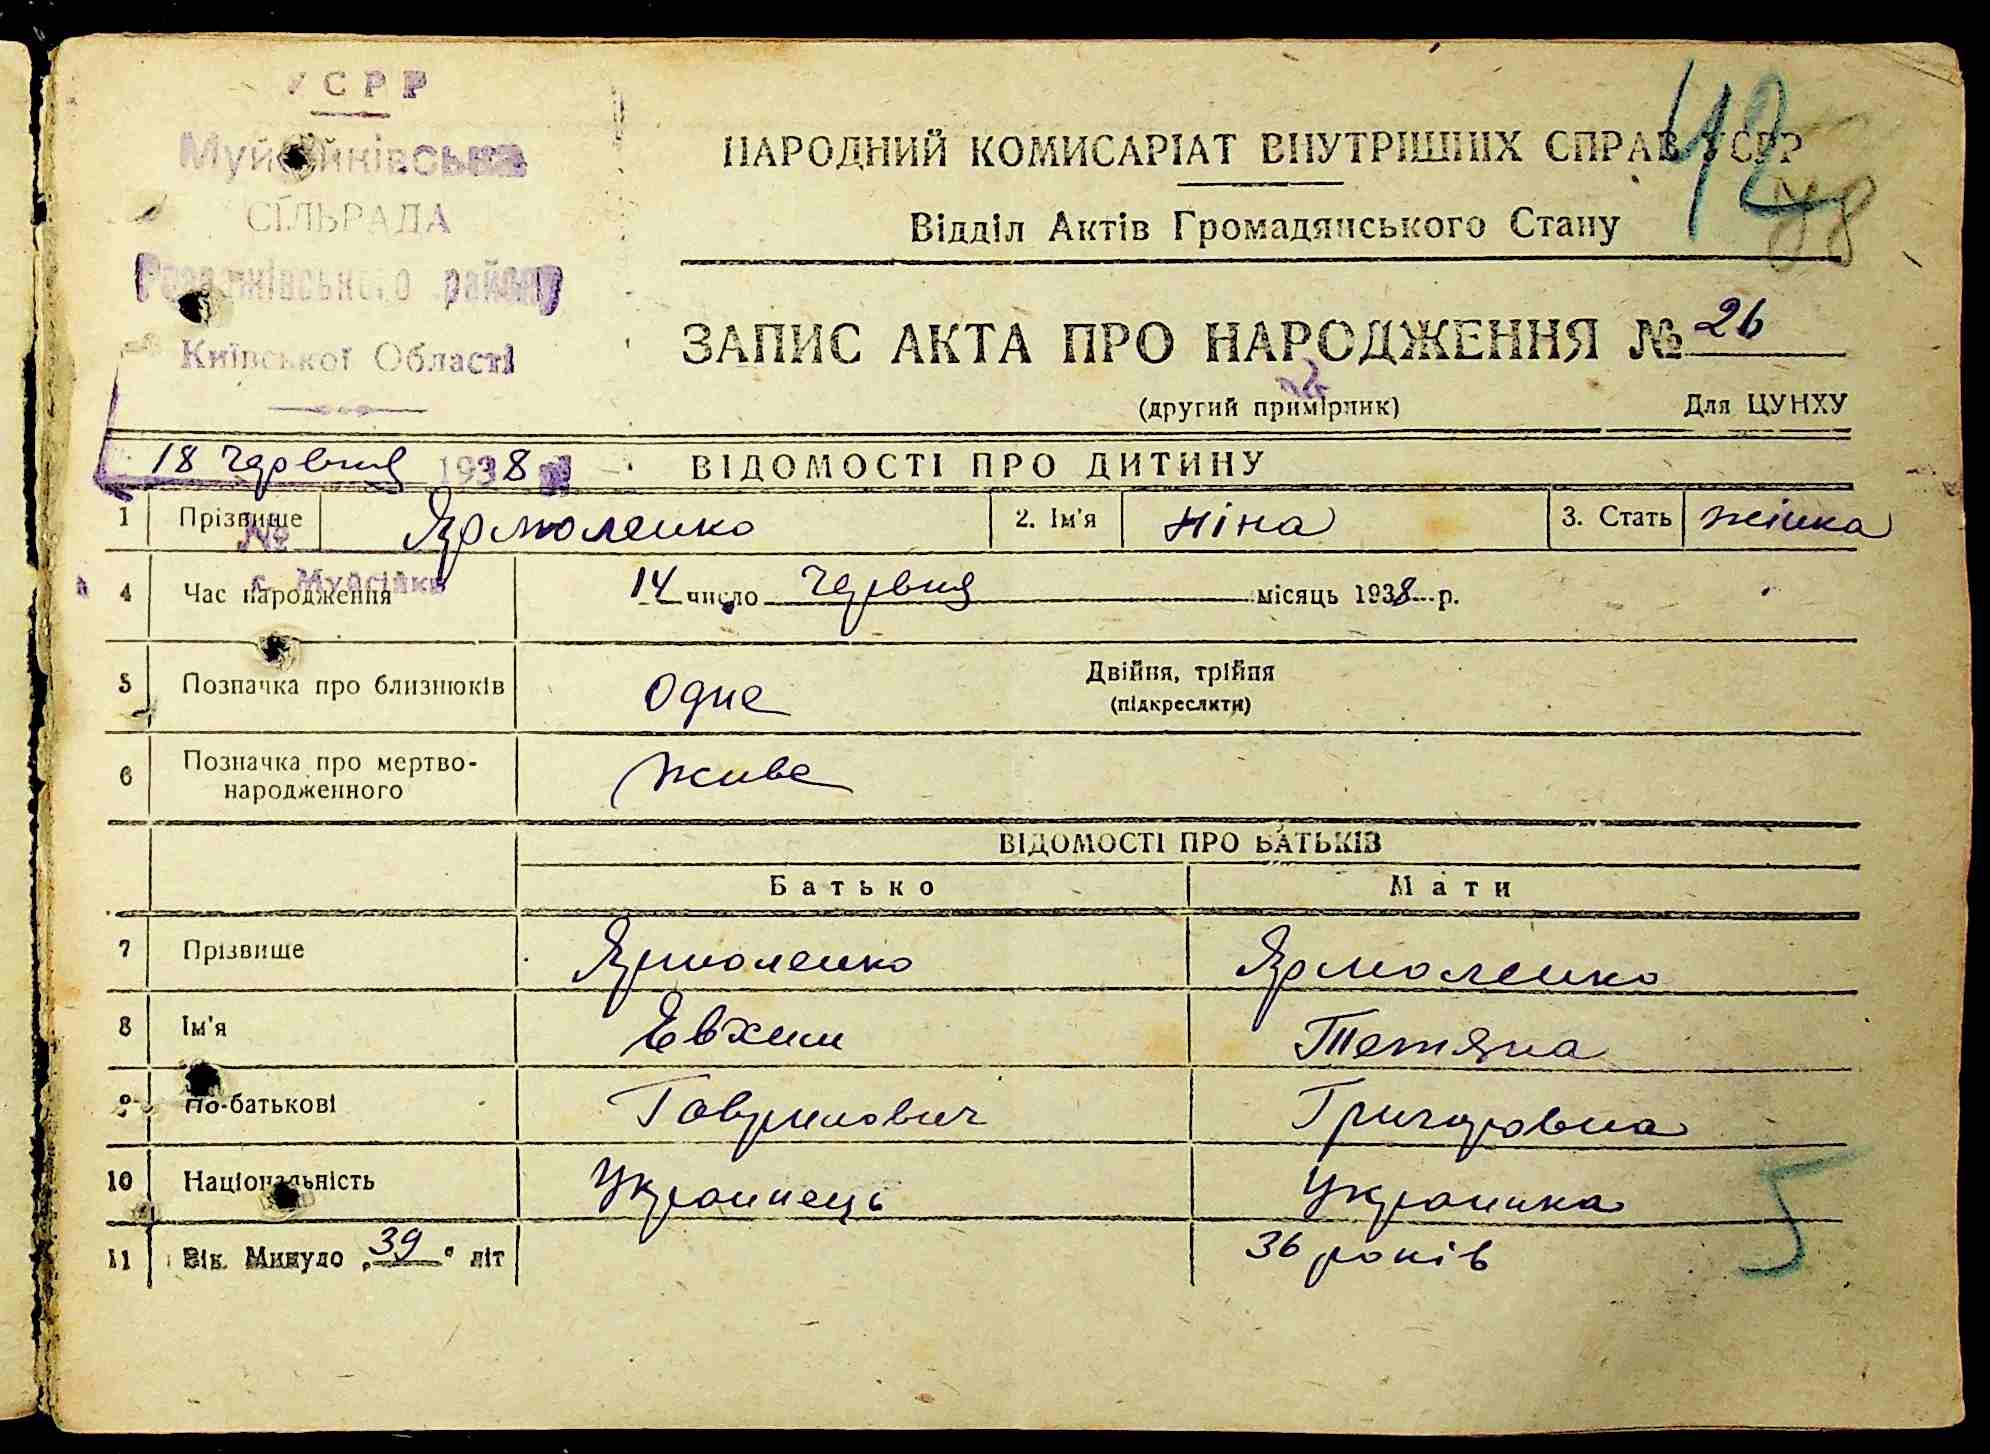 УСРР
Муйсійківська
СІЛЬРАДА
Розважівського району
Київської Області
42
НАРОДНИЙ КОМИСАРІАТ ВНУТРІШНІХ СПРАВ УСРР
Відділ Актів Громадянського Стану
ЗАПИС АКТА ПРО НАРОДЖЕННЯ № 26
2
(другий примірник)
Для ЦУНХУ
18 червня 1938
ВІДОМОСТІ ПРО ДИТИНУ
1 Прізвище Ярмоленко 2. Ім'я Ніна 3. Стать жінка
№
с. Муйсійки
4 Час народження 14 число червня місяць 1938 р.
5 Позначка про близнюків Одне Двійня, трійня
(підкреслити)
6 Позначка про мертво-
народженного Живе
ВІДОМОСТІ ПРО БАТЬКІВ
Батько Мати
7 Прізвище Ярмоленко Ярмоленко
8 Ім'я Евхим Тетяна
9 По-батькові Гаврилович Григоровна
10 Національність Українець Українка
5
11 Вік. Минуло „39" літ 36 років